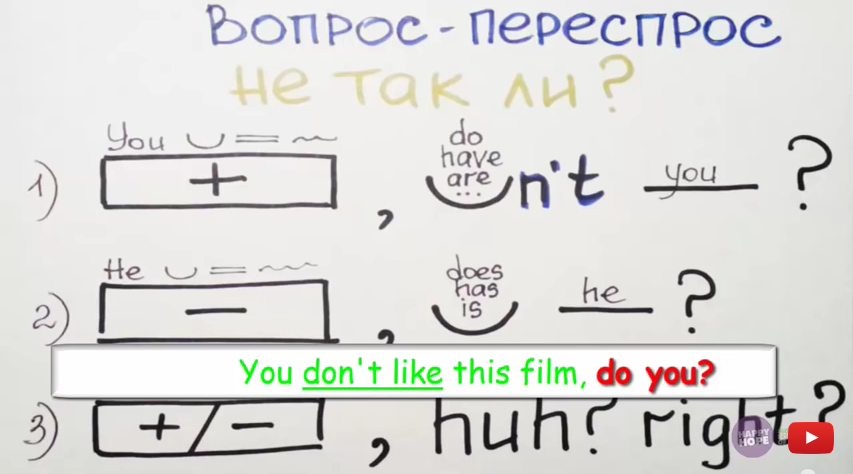 Вопрос - переспрос
Не так ли?
You
do
have
are
...
1) + , n't you ?
He
does
has
is
2) — , he ?
You don't like this film, do you?
3) + / — , huh? right?
HAPPY
HOPE